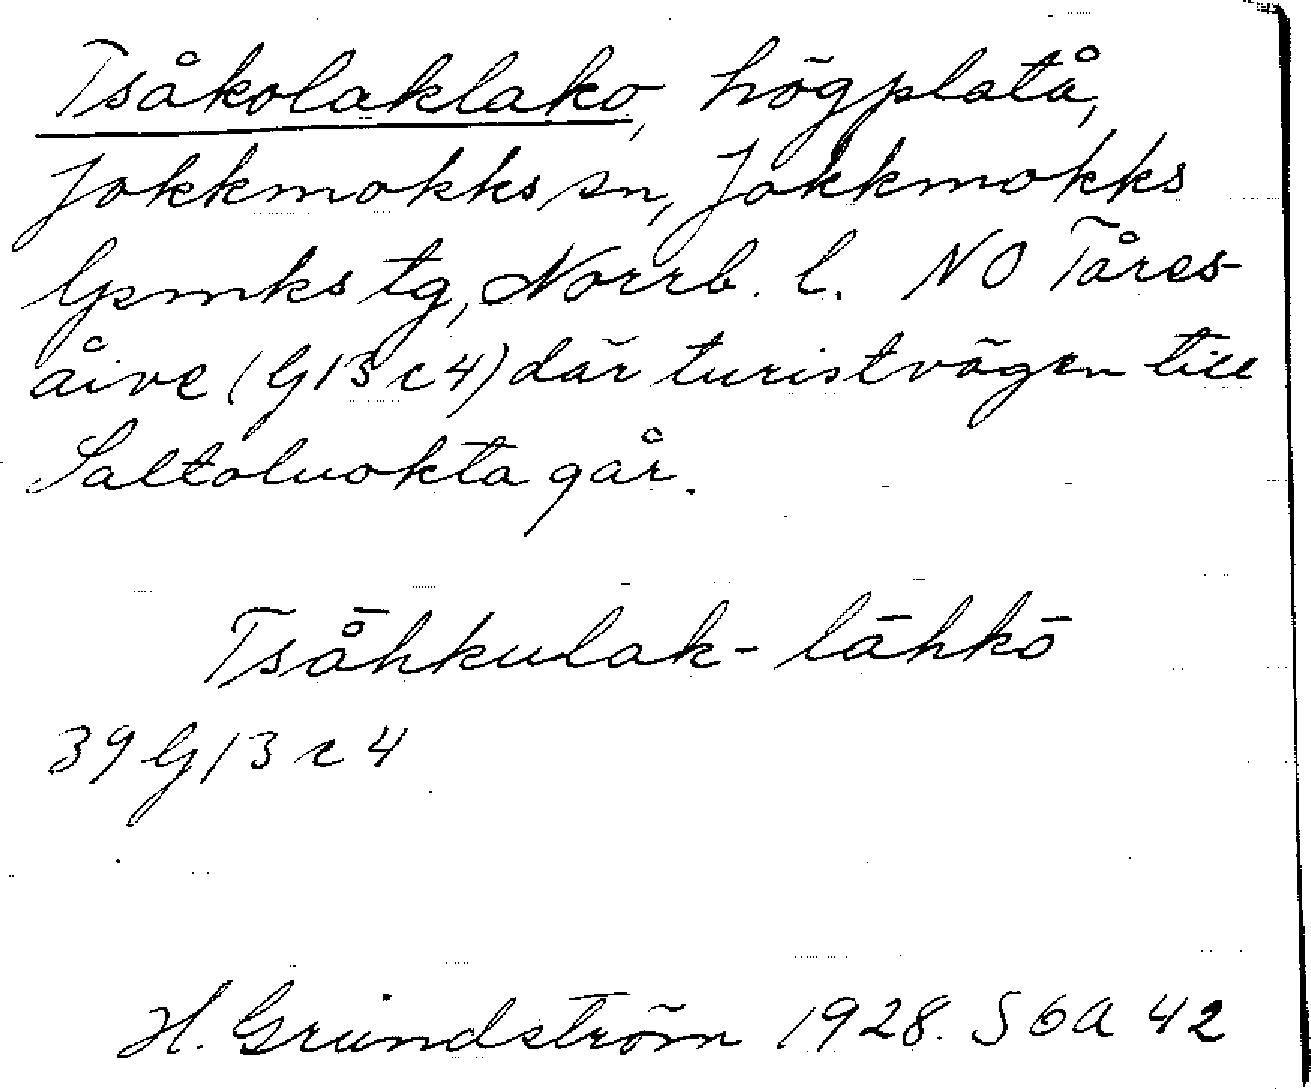 Tsåkolaklako, högplatå,
Jokkmokks sn, Jokkmokks
lpmks tg, Norrb. l. NO Tåres-
åive (G13c4) där turistvägen till
Saltoluokta går.
Tså̄hkulak-lāhkō
39 G13c4
H. Grundström 1928. S 6a 42